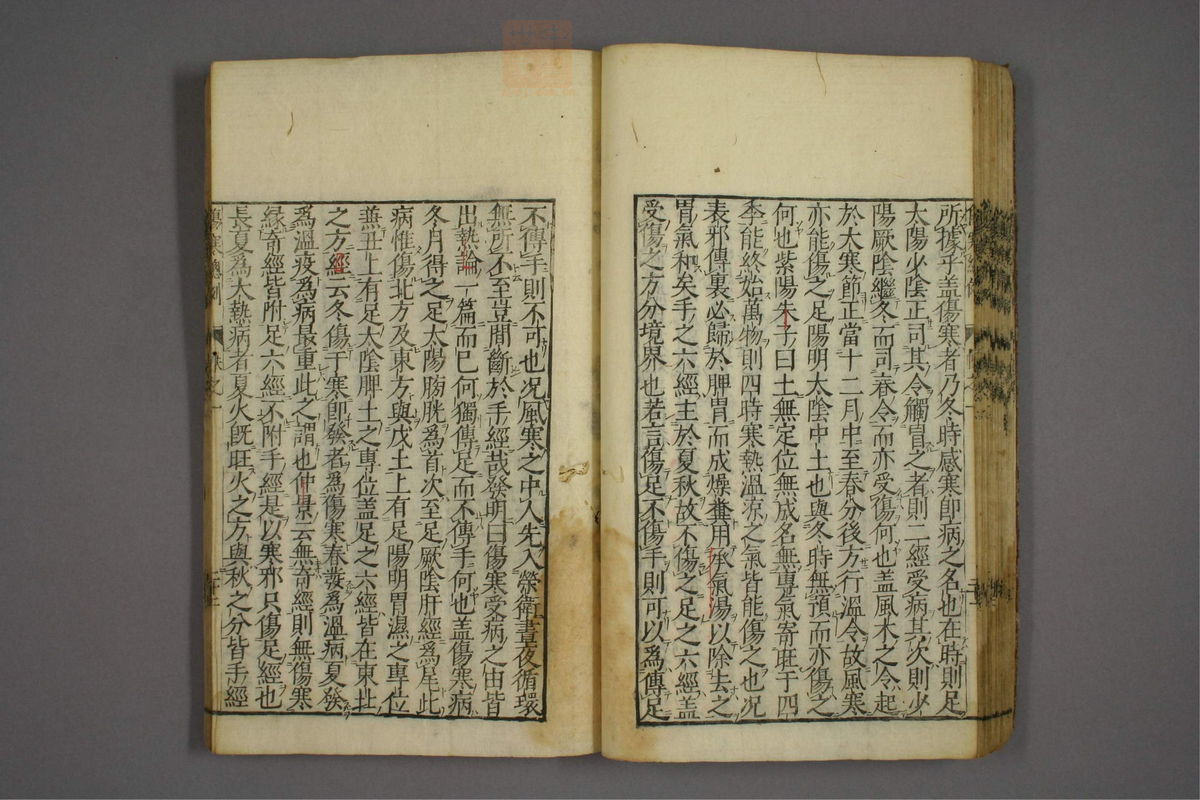 所據乎盖傷寒者乃冬時感寒即病之名也在時則足
太陽少陰正司其令觸冒之者則二經受病其次則少
陽厥陰繼冬而司春令而亦受傷何也盖風木之令起
於大寒節正當十二月中至春分後方行溫令故風寒
亦能傷之足陽明太陰中土也與冬時無預而亦傷之
何也紫陽朱子曰土無定位無成名無專氣寄旺于四
季能終始萬物則四時寒熱溫凉之氣皆能傷之也况
表邪傳裏必歸於脾胃而成燥糞用承氣湯以除去之
胃氣和矣手之六經主於夏秋故不傷之足之六經盖
受傷之方分境界也若言傷足不傷手則可以為傳足
不傳手則不可也况風寒之中人先入榮衛晝夜循環
無所不至豈間斷於手經哉發明曰傷寒受病之由皆
出熱論一篇而已何獨傳足而不傳手何也盖傷寒病
冬月得之足太陽膀胱為首次至足厥陰肝經為尾此
病惟傷北方及東方與戊土上有足陽明胃濕之專位
兼丑上有足太陰脾土之專位盖足之六經皆在東北
之方經云冬傷于寒即發者為傷寒春發為溫病夏發
為溫疫為病最重此之謂也仲景云無奇經則無傷寒
緣奇經皆附足六經不附手經是以寒邪只傷足經也
長夏為大熱病者夏火既旺火之方與秋之分皆手經